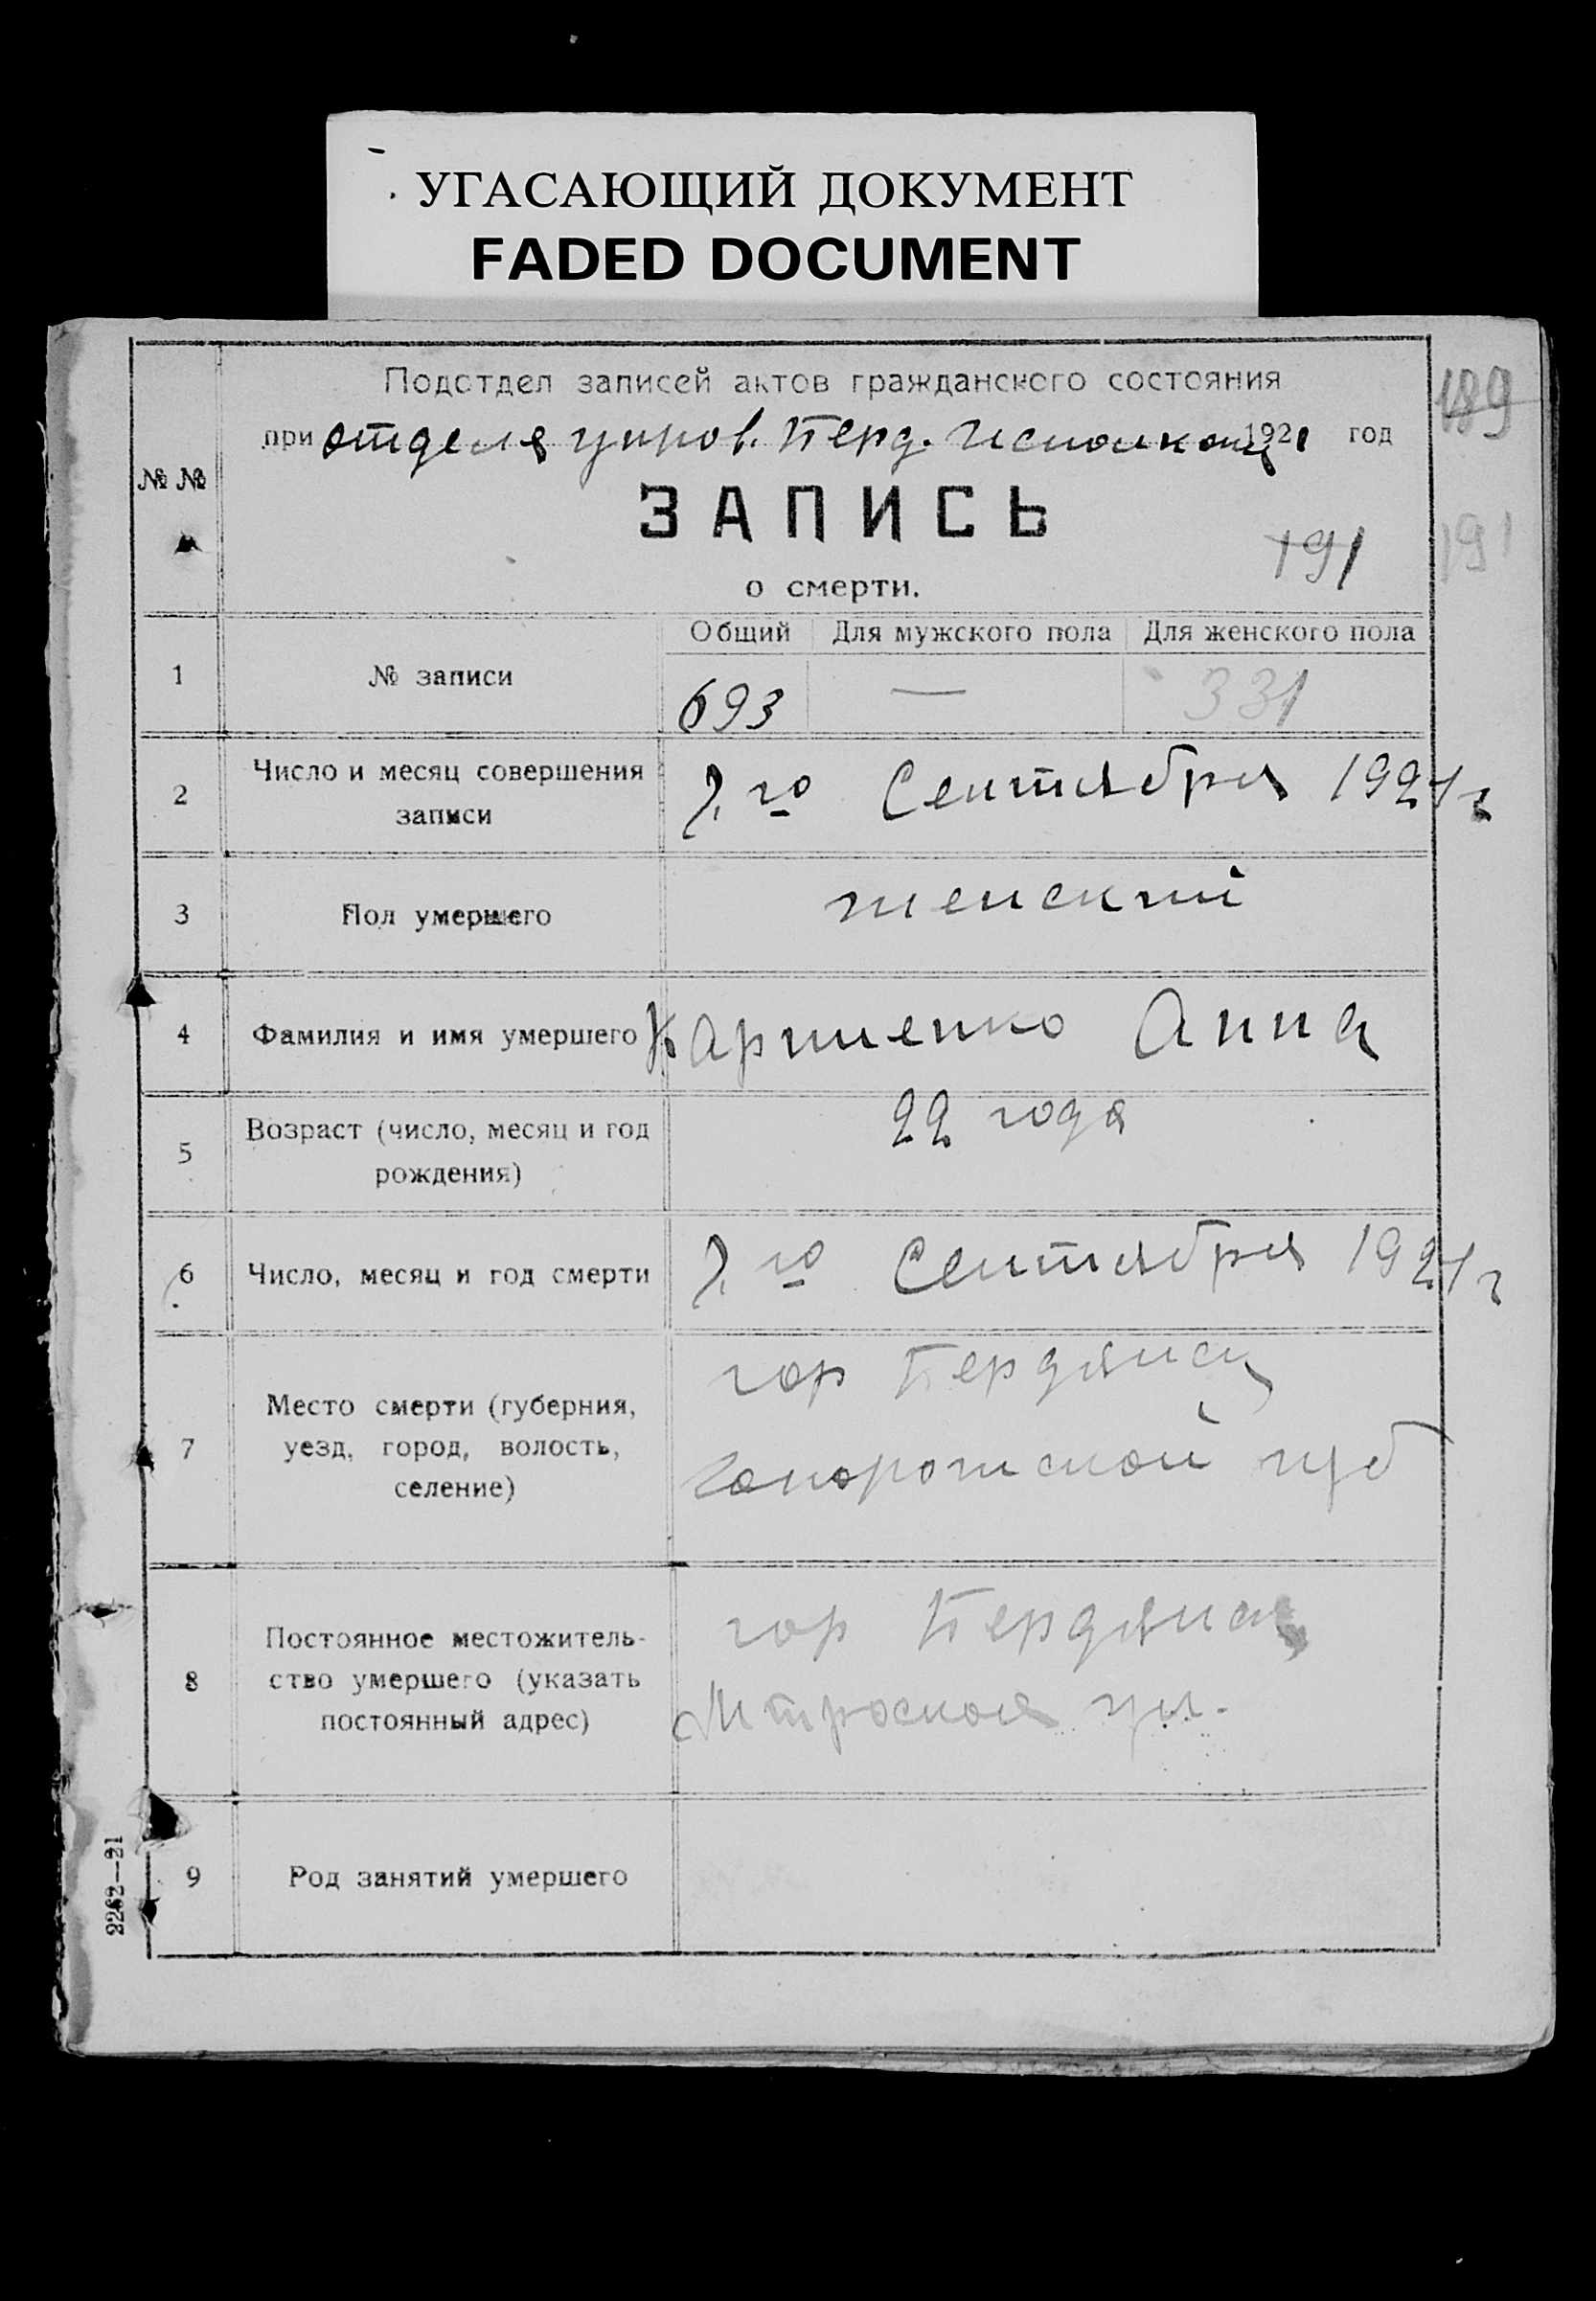 УГАСАЮЩИЙ ДОКУМЕНТ
FADED DOCUMENT
189
Подотдел записей актов гражданского состояния
при отдела управ. Берд. Исполкома 1921 год
№ №
ЗАПИСЬ
191
191
о смерти.
Общий Для мужского пола Для женского пола
1 № записи 693 — 331
2 Число и месяц совершения записи 7 го Сентября 1921 г
3 Пол умершего женский
4 Фамилия и имя умершего Анна
5 Возраст (число, месяц и год рождения) 22 года
6 Число, месяц и год смерти 7 го Сентября 1921 г
7 Место смерти (губерния, уезд, город, волость, селение) гор Бердянск
Запорожской губ
8 Постоянное местожитель-
ство умершего (указать постоянный адрес) гор Бердянск
ул.
9 Род занятий умершего
2262—21